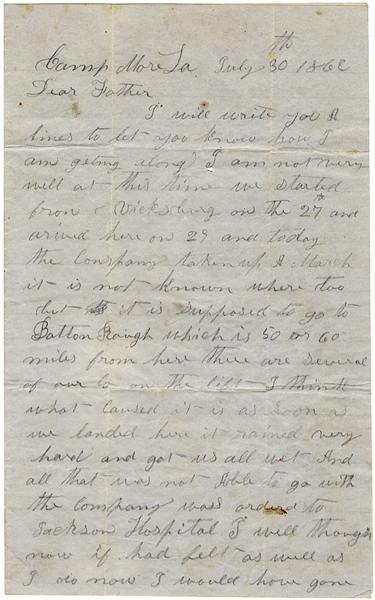 Camp More La July 30th 1862
Dear Father
I will write you A
lines to let you know how I
am geting along I am not very
well at this time we started
from Vicksburg on the 27th and
arived here on 29 and today
the Company taken up A March
it is not known where too
but it is supposed to go to
Batton Rough which is 50 or 60
miles from here there are several
of our Co on the list I think
what caused it is as soon as
we landed here it rained very
hard and got us all wet And
all that was not Able to go with
the company was orderd to
Jackson Hospital I will though
now if had felt as well as
I do now I would have gone